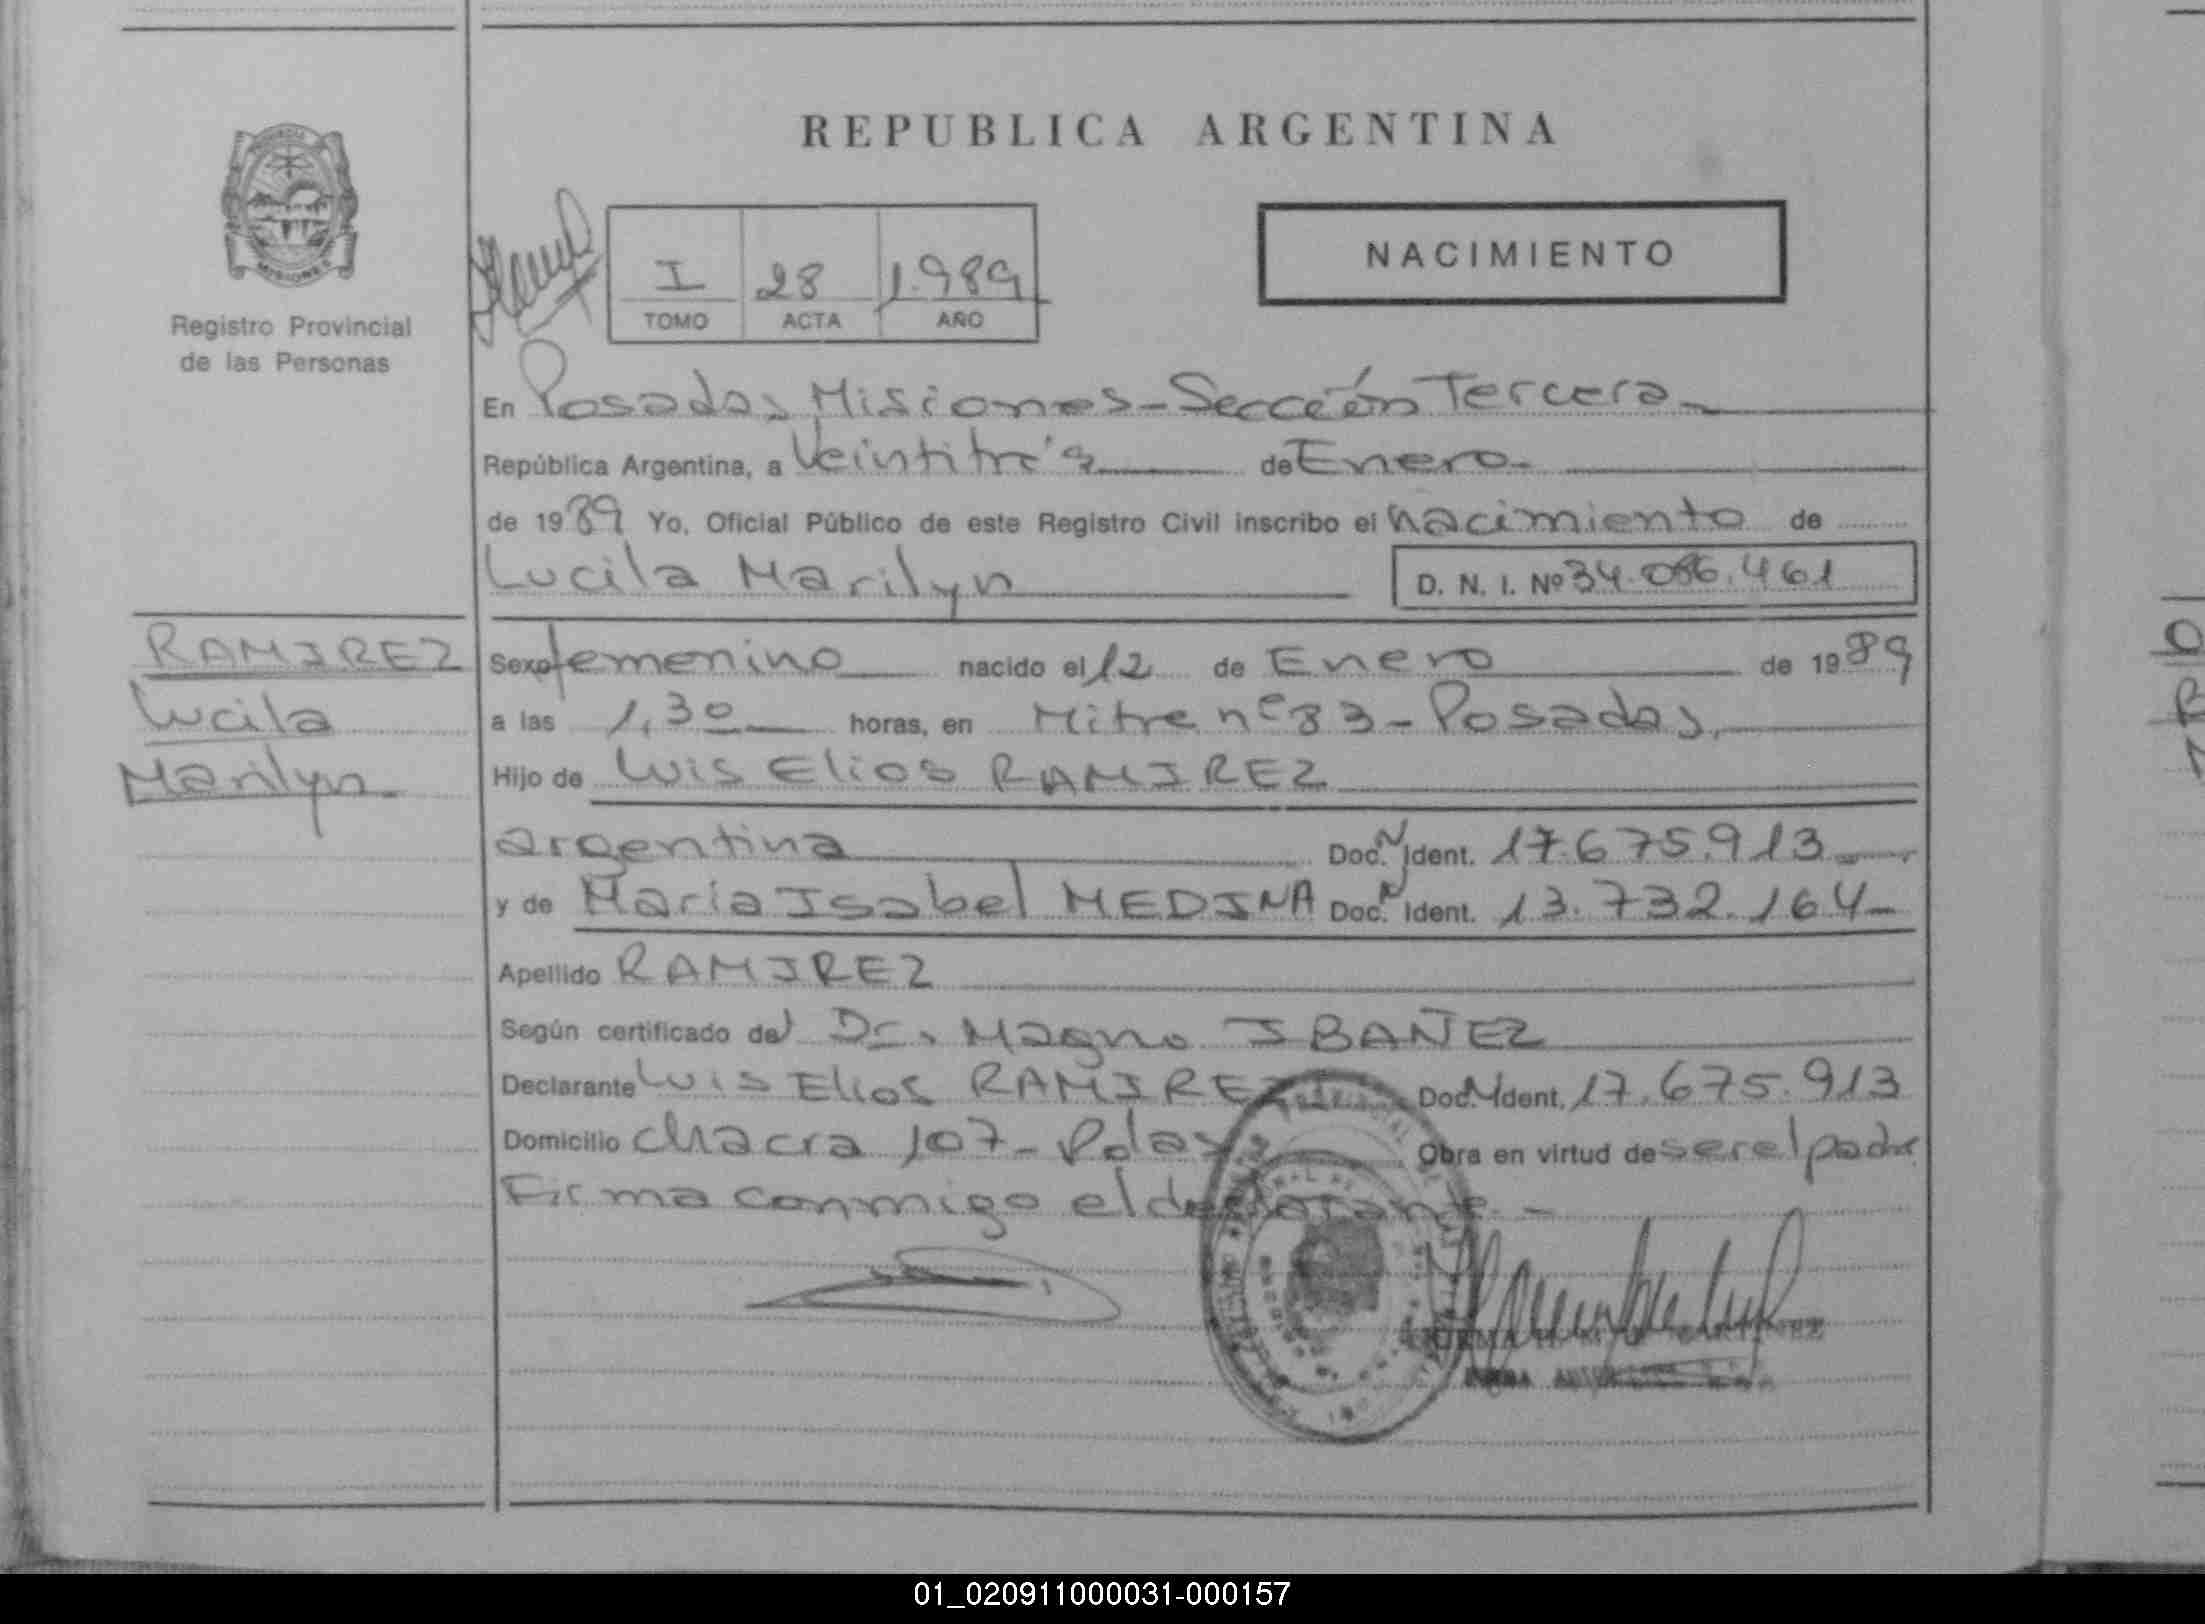 REPUBLICA ARGENTINA
MISIONES
Registro Provincial
de las Personas
NACIMIENTO
I 28 1.989
TOMO ACTA AÑO
En Posadas, Misiones - Sección Tercera -
República Argentina, a Veintitrés de Enero -
de 1989 Yo, Oficial Público de este Registro Civil inscribo el nacimiento de
Lucila Marilyn D. N. I. Nº 34.086.461
RAMIREZ
Lucila
Marilyn -
Sexo femenino nacido el 12 de Enero de 1989
a las 1,30 horas, en Mitre nº 83 - Posadas,
Hijo de Luis Elios RAMIREZ
argentina Doc. N Ident. 17.675.913
y de Maria Isabel MEDINA Doc. N Ident. 13.732.164 -
Apellido RAMIREZ
Según certificado del Dr. Magno IBAÑEZ
Declarante Luis Elios RAMIREZ Doc. N Ident. 17.675.913
Domicilio chacra 107 - Pdas Obra en virtud de ser el padre
Firma conmigo el declarante. -
01_020911000031-000157